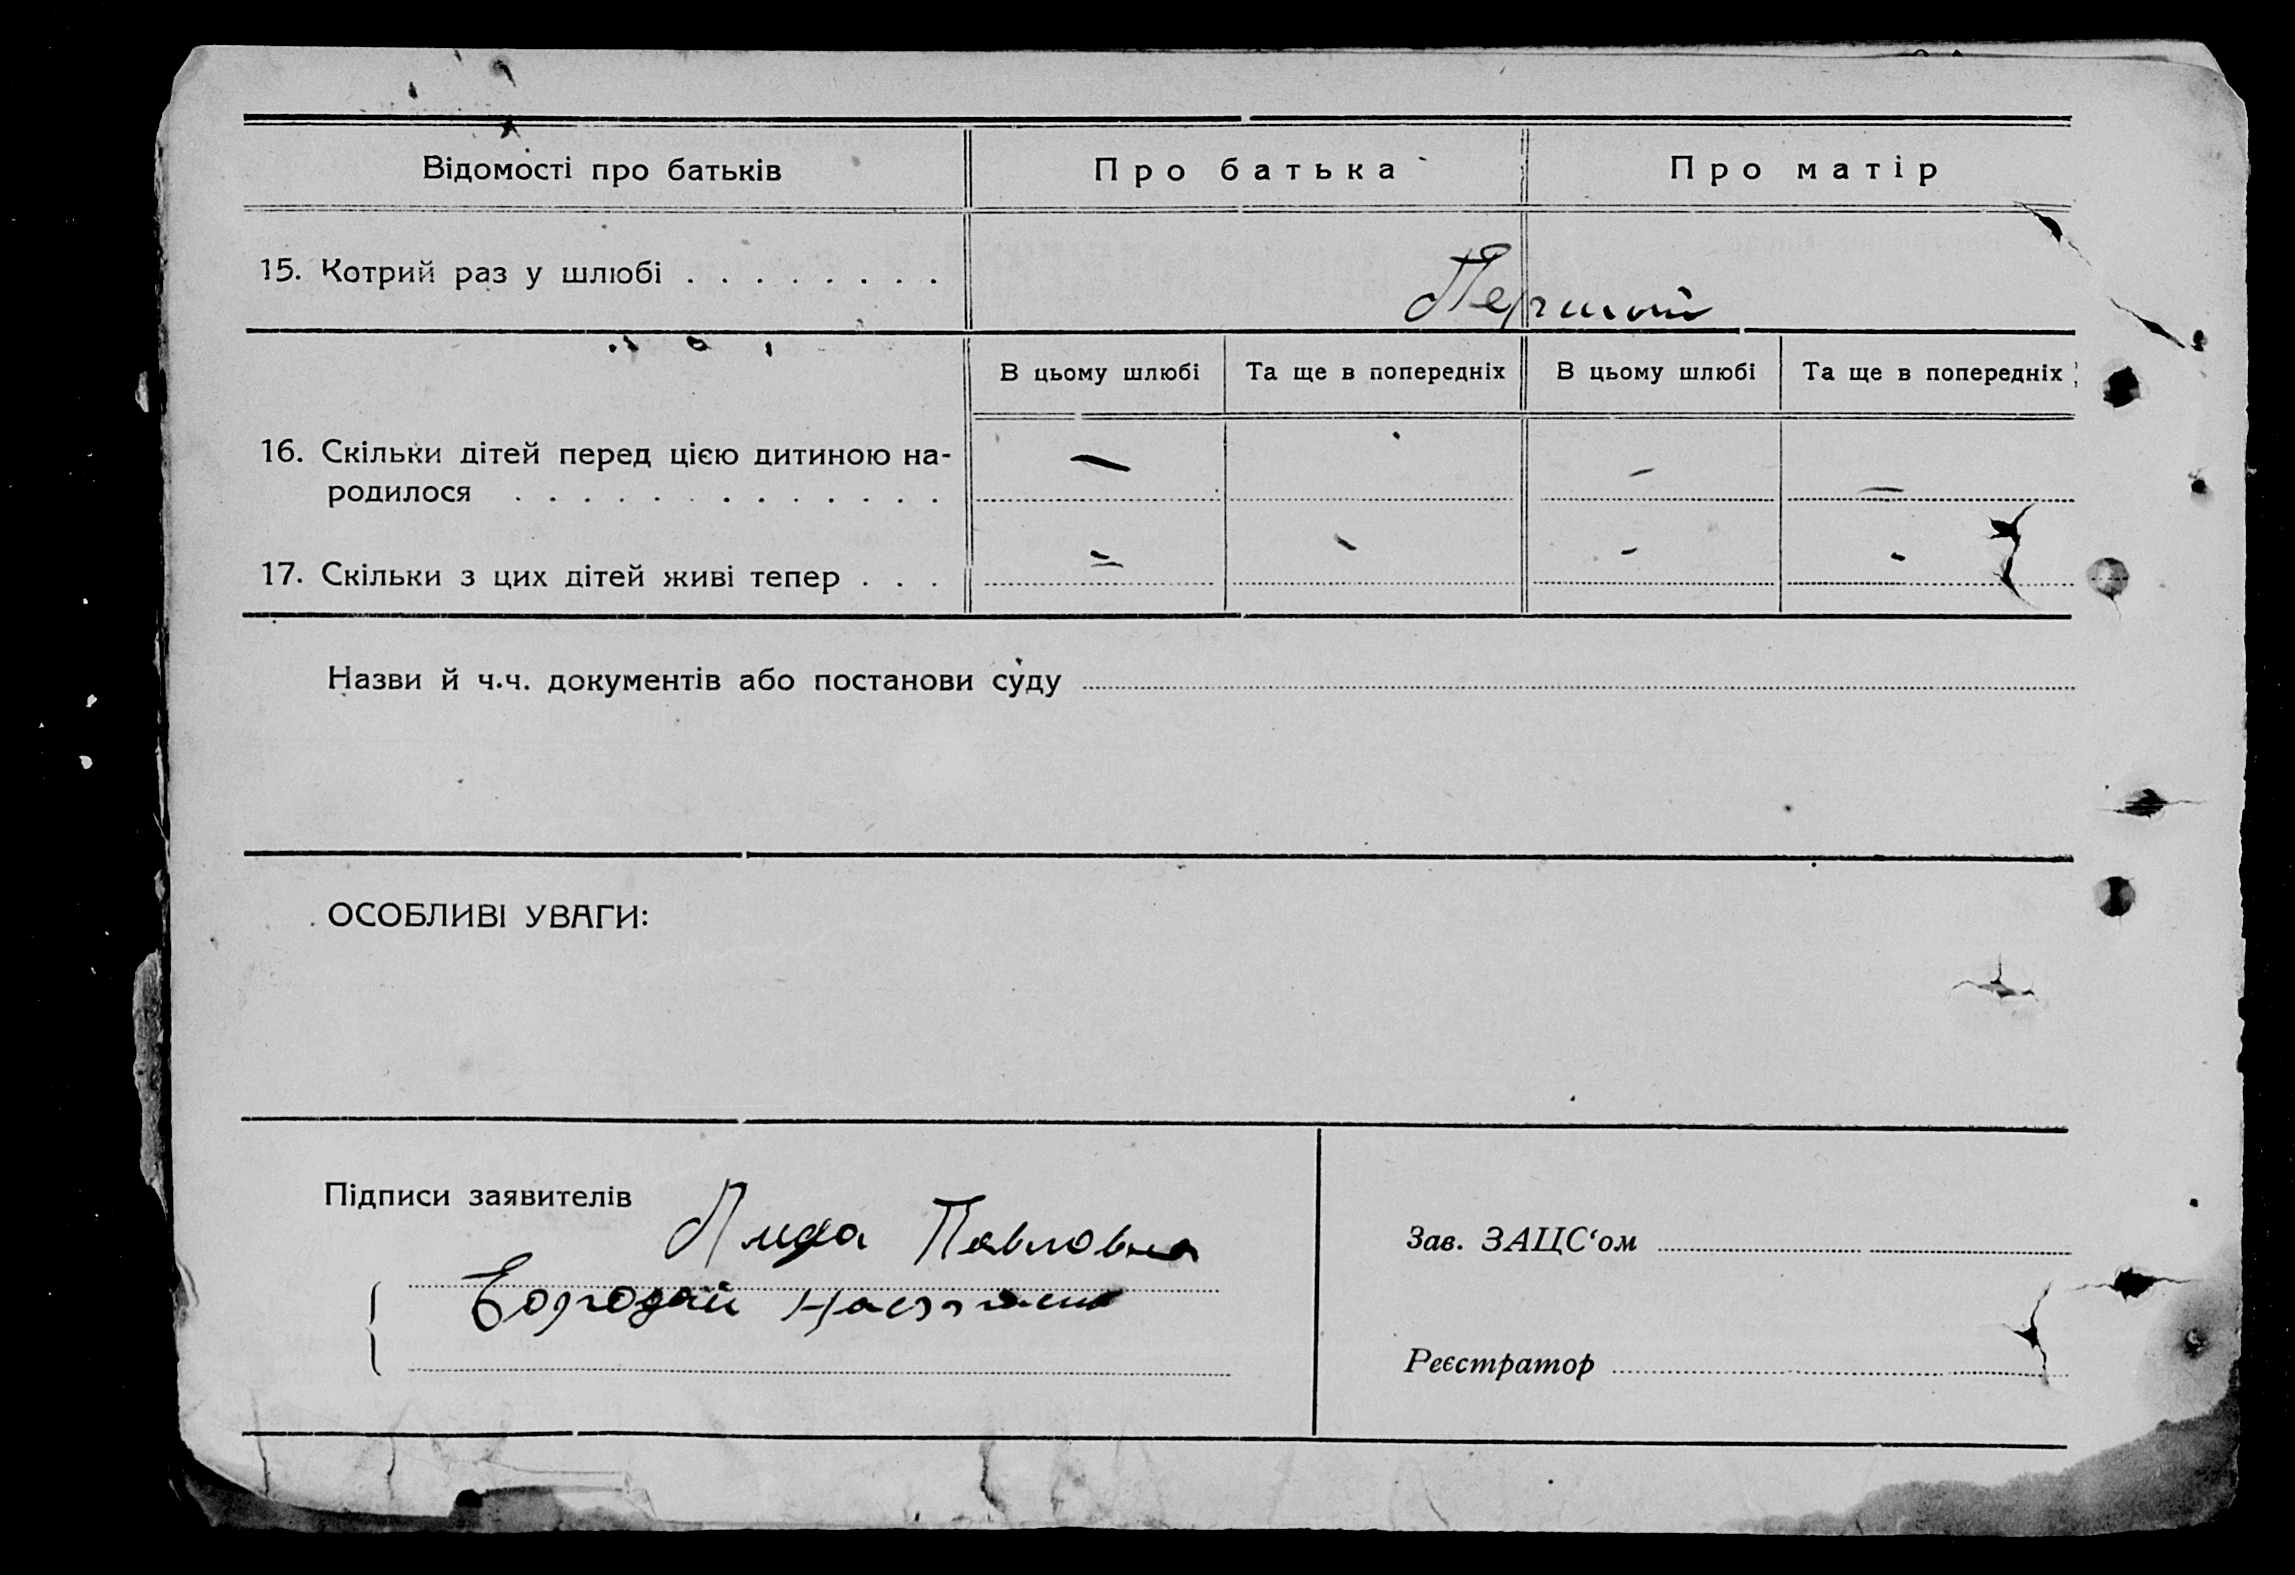 Відомості про батьків
Про батька
Про матір
15. Котрий раз у шлюбі . . . . . . . .
Перший
В цьому шлюбі
Та ще в попередніх
В цьому шлюбі
Та ще в попередніх
16. Скільки дітей перед цією дитиною на-
родилося . . . . . . . . . . . . .
17. Скільки з цих дітей живі тепер . . .
Назви й ч.ч. документів або постанови суду
ОСОБЛИВІ УВАГИ:
Підписи заявителів
Лида Павловна
Бородай
Зав. ЗАЦС‘ом
Реєстратор